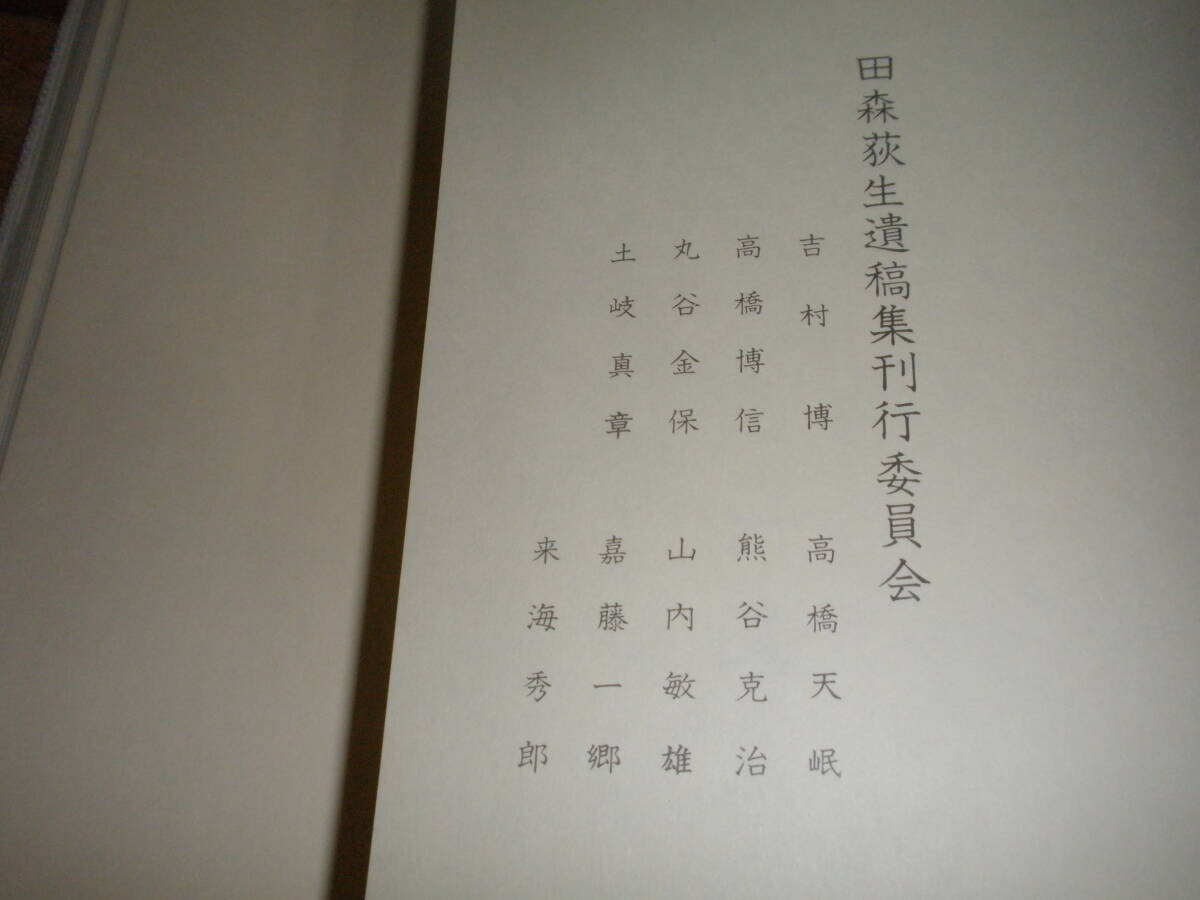 田森荻生遺稿集刊行委員会
吉村博
高橋天岷
高橋博信
熊谷克治
丸谷金保
山内敏雄
土岐真章
嘉藤一郷
来海秀郎